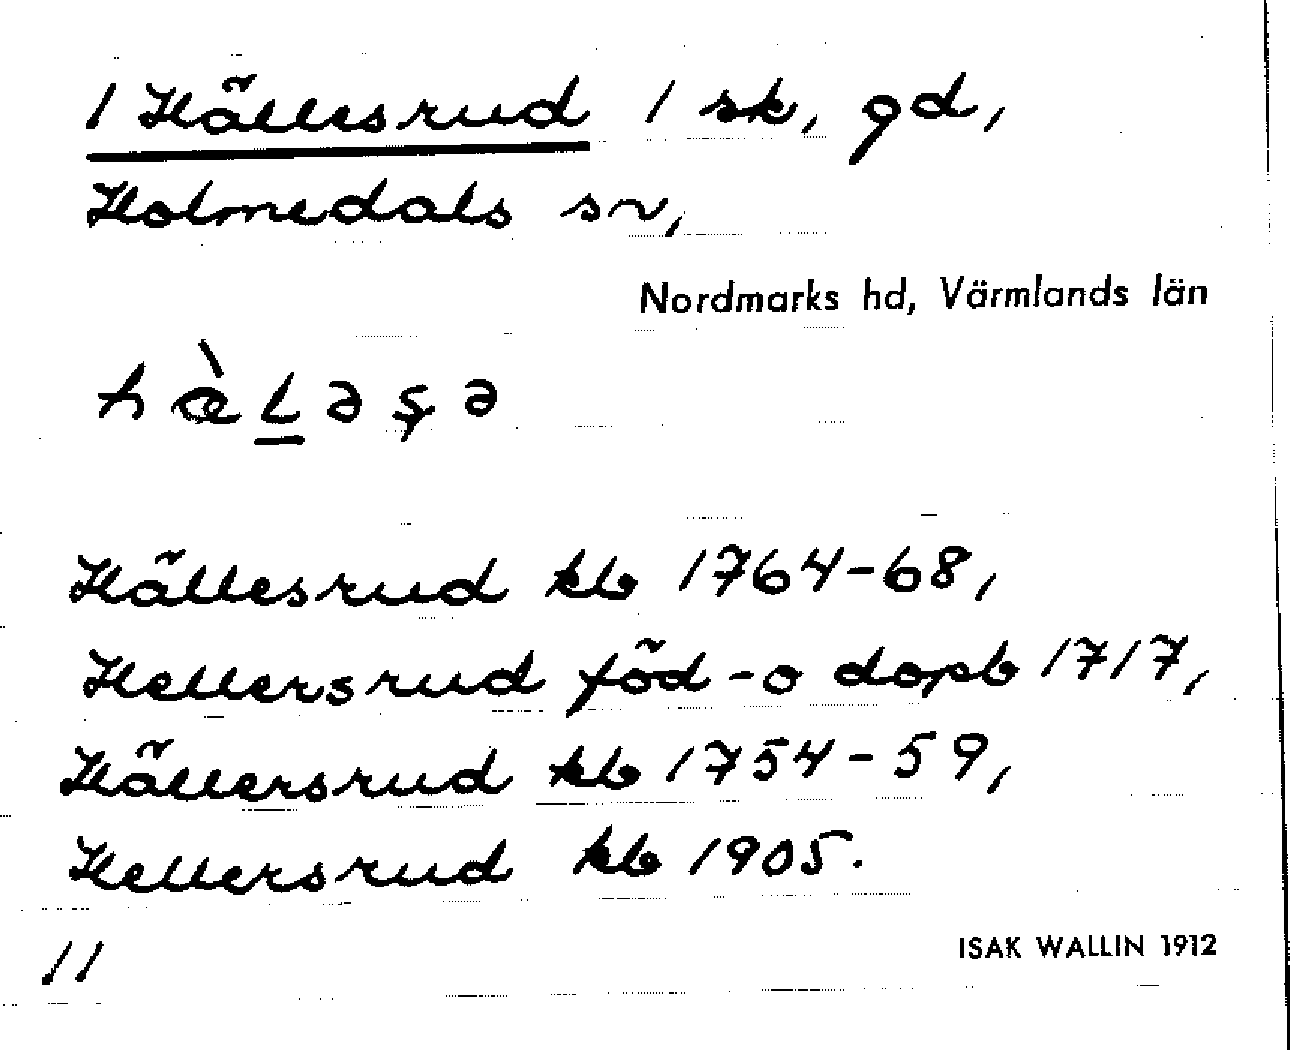 1 Hällesrud 1 sk, gd,
Holmedals sn,
Nordmarks hd, Värmlands län
hæ̀L̲əșə
Hällesrud kb 1764-68,
Hellersrud föd-o dopb 1717,
Hällersrud kb 1754-59,
Hellersrud kb 1905.
11
ISAK WALLIN 1912